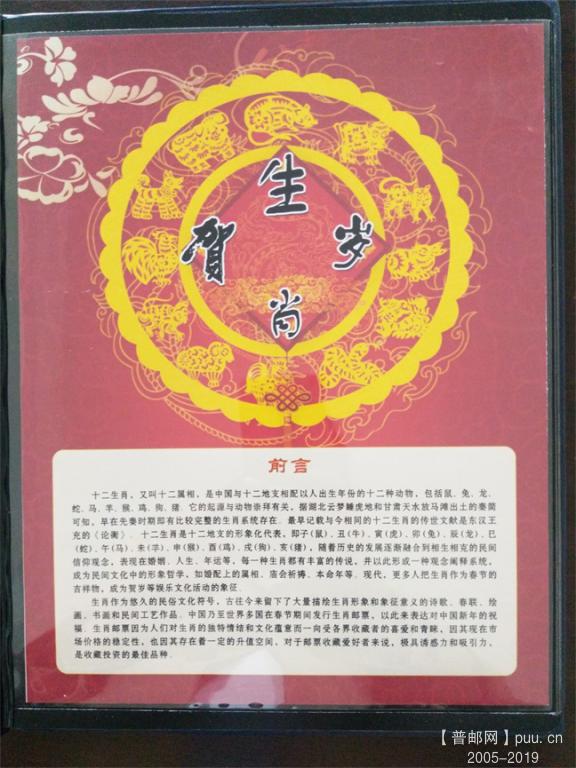 生
贺 岁
肖
前言
十二生肖，又叫十二属相，是中国与十二地支相配以人出生年份的十二种动物，包括鼠、兔、龙、
蛇、马、羊、猴、鸡、狗、猪．它的起源与动物崇拜有关。据湖北云梦睡虎地和甘肃天水放马滩出土的秦简
可知，早在先秦时期即有比较完整的生肖系统存在．最早记载与今相同的十二生肖的传世文献是东汉王
充的《论衡》．十二生肖是十二地支的形象化代表，即子(鼠)、丑(牛)、寅(虎)、卯(兔)、辰(龙)、巳
(蛇)、午(马)、未(羊)、申(猴)、酉(鸡)、戌(狗)、亥(猪)，随着历史的发展逐渐融合到相生相克的民间
信仰观念，表现在婚姻、人生、年运等，每一种生肖都有丰富的传说，并以此形成一种观念阐释系统，
成为民间文化中的形象哲学，如婚配上的属相、庙会祈祷、本命年等．现代，更多人把生肖作为春节的
吉祥物，成为贺岁等娱乐文化活动的象征．
生肖作为悠久的民俗文化符号，古往今来留下了大量描绘生肖形象和象征意义的诗歌、春联、绘
画、书画和民间工艺作品．中国乃至世界多国在春节期间发行生肖邮票，以此来表达对中国新年的祝
福．生肖邮票因为人们对生肖的独特情结和文化蕴意而一向受各界收藏者的喜爱和青睐，因其现在市
场价格的稳定性，也因其存在着一定的升值空间，对于邮票收藏爱好者来说，极具诱惑力和吸引力，
是收藏投资的最佳品种．
【普邮网】puu.cn
2005-2019